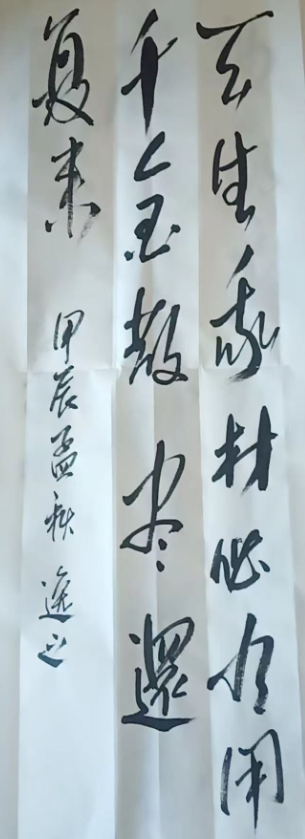 天生我材必有用
千金散尽還
复来
甲辰孟秋